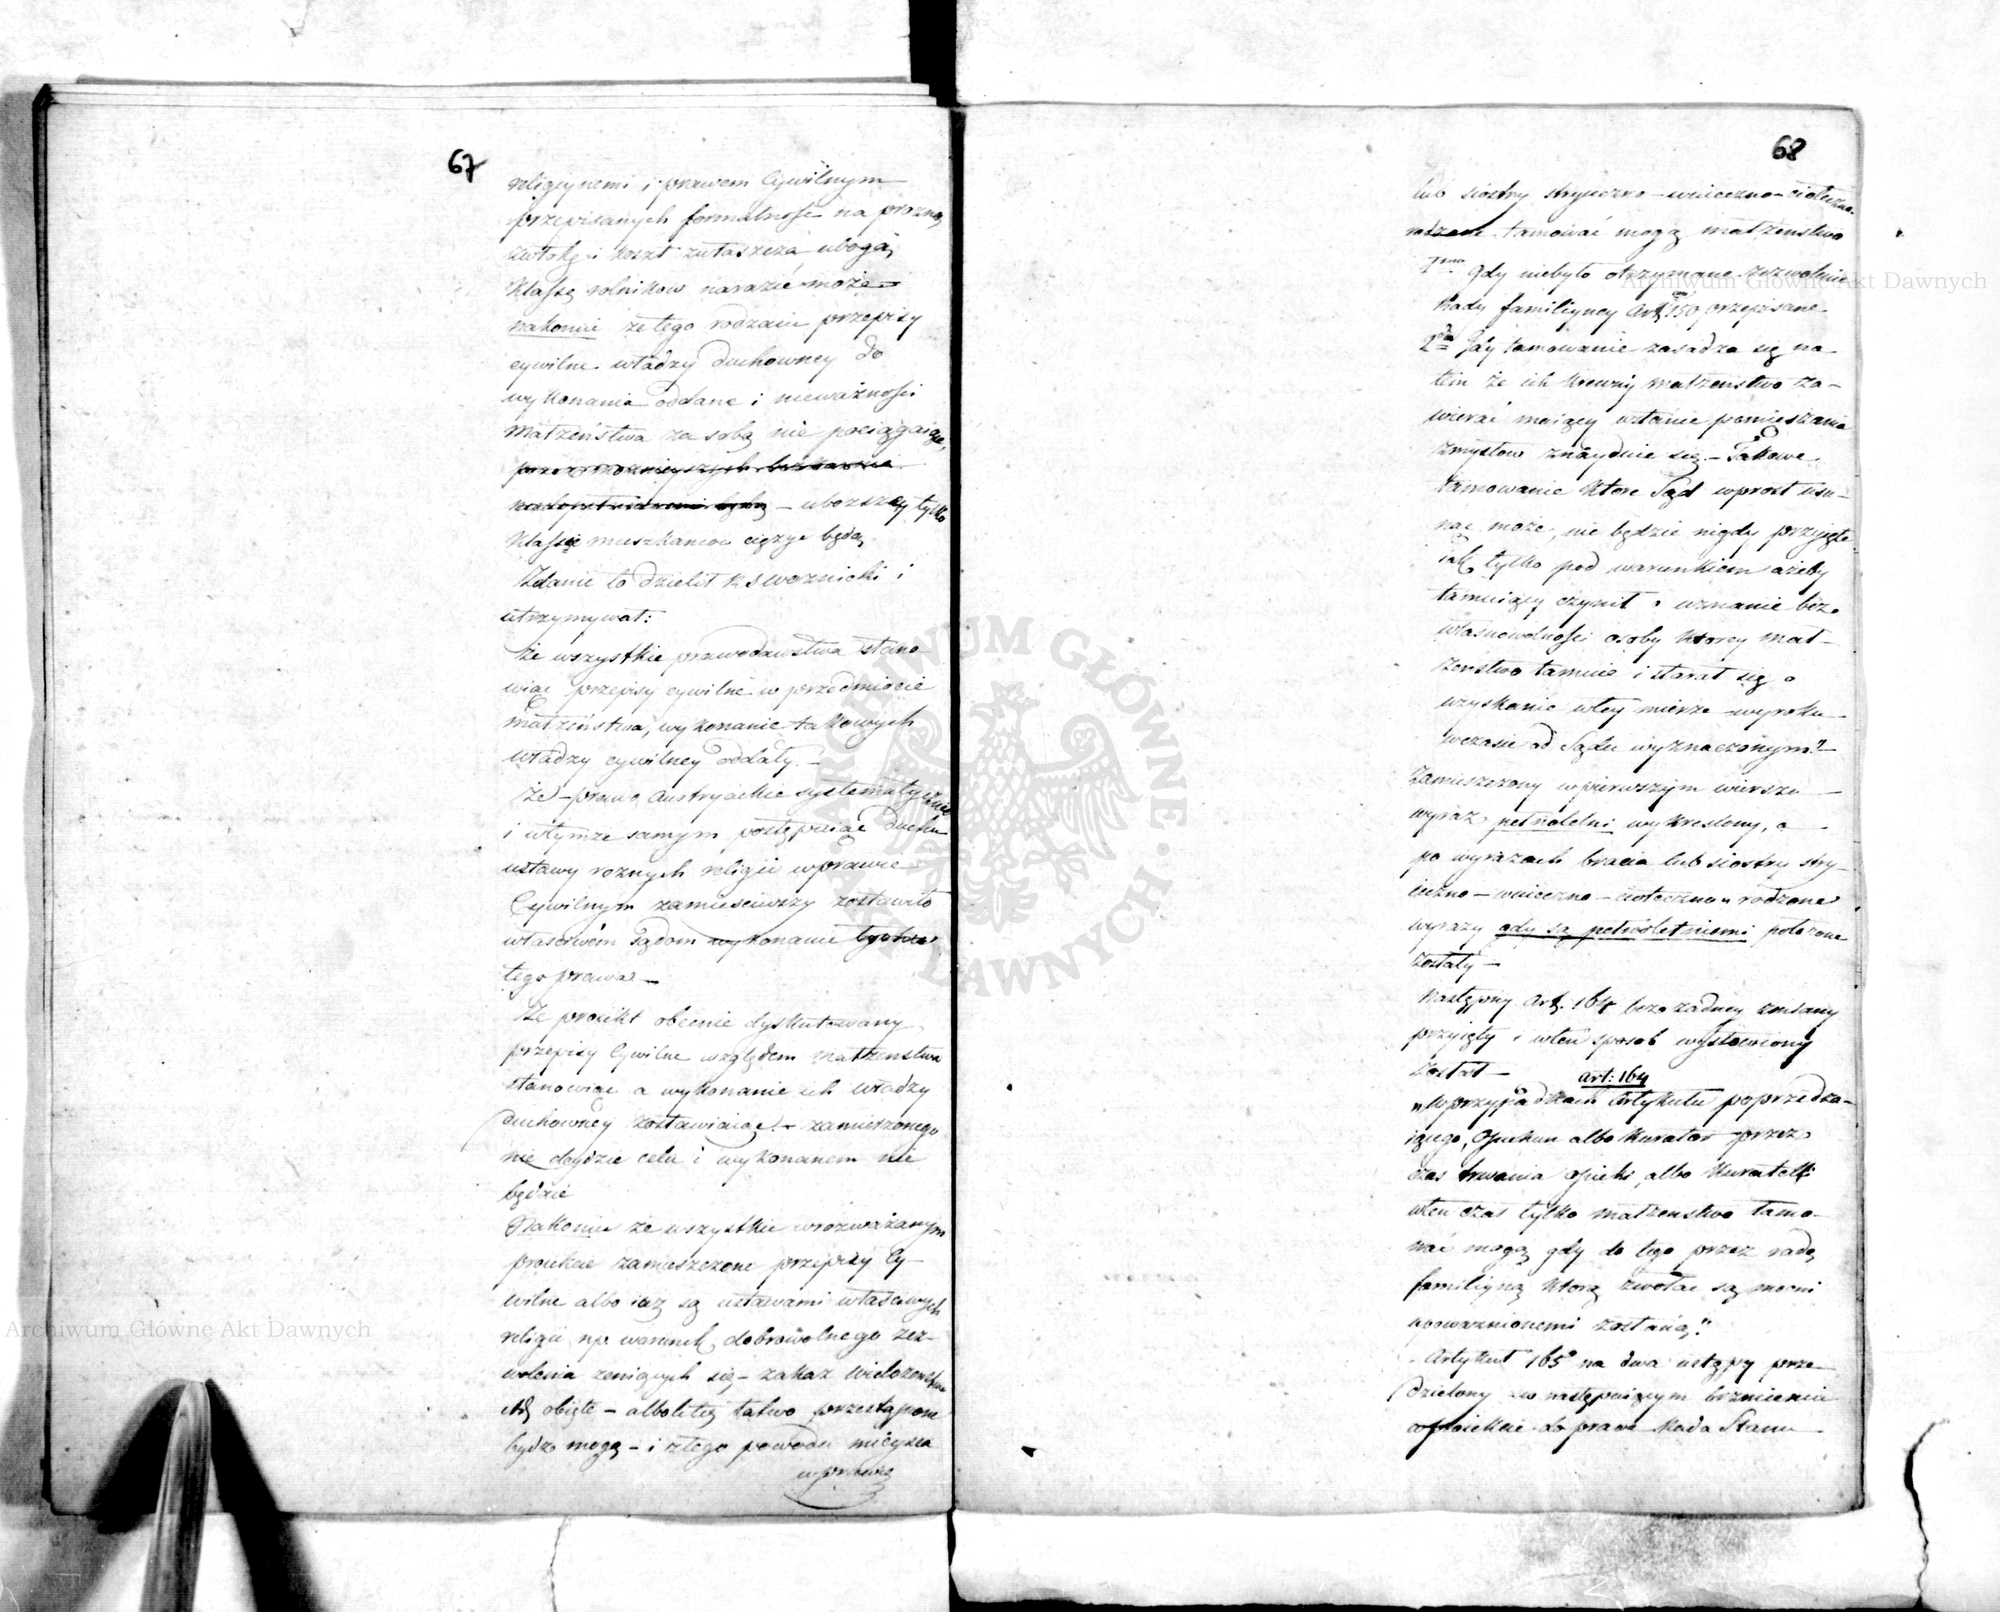 67
religiynemi i prawem Cywilnym
przepisanych formalności na prozną
zwłokę i koszt zwłaszcza ubogą
Klassę rolnikow narazić może
nakoniec że tego rodzaiu przepisy
cywilne władzy duchowney do
wykonania oddane i nieważności
Małżeństwa za sobą nie pociągaiące,
uboższey tylko
Klassie mieszkancow ciężyć będą
Zdanie to dzielił i
utrzymywał:
Że wszystkie prawodawstwa stano-
wiąc przepisy cywilne w przedmiocie
małżeństwa, wykonanie takowych
władzy cywilney oddały. –
Że prawo Austryackie systematycznie
i w tymże samym postępuiąc duchu
ustawy roznych religii w prawie
Cywilnym zamieściwszy zostawiło
właściwem Sądom wykonanie tychże
tego prawa –
Że proiekt obecnie dyskutowany
przepisy Cywilne względem Małżenstwa
stanowiąc a wykonanie ich władzy
duchowney zostawiaiąc – zamierzonego
nie doydzie celu i wykonanem nie
będzie
Nakoniec że wszystkie w rozważanym
proiekcie zamieszczone przepisy Cy-
wilne albo iuż są ustawami właściwych
religii np. warunek dobrowolnego zez-
wolenia żeniących się – zakaz wielożenstwa
obięte – albo też łatwo przestąpione
bydź mogą – i z tego powodu mieysca
w prawie
68
lub siostry stryieczno – wuieczno – cioteczno-
rodzone tamować mogą małżenstwo
1mo Gdy niebyło otrzymane zezwolenie
Rady familiyney Artm 159 przepisane
2do Gdy tamowanie zasadza się na
tem że ich krewny małżenstwo za-
wierać maiący w stanie pomieszania
zmysłow znayduie się – Takowe
tamowanie które Sąd wprost usu-
nąć może, nie będzie nigdy przyięte
iak tylko pod warunkiem ażeby
tamuiący czynił o uznanie bez-
własnowolności osoby ktorey mał-
żenstwo tamuie i starał się o
uzyskanie w tey mierze wyroku
w czasie od Sądu wyznaczonym"–
Zamieszczony w pierwszym wierszu
wyraz pełnoletni wykreślony, a
po wyrazach bracia lub siostry stry-
ieczno – wuieczno – cioteczno rodzone
wyrazy gdy są pełnoletniemi położone
zostały –
Następny Art. 164 bez żadney zmiany
przyięty i w ten sposob wysłowiony
został –
Art: 164
„W przypadkach Artykułu poprzedza-
iącego, Opiekun albo Kurator przez
czas trwania opieki, albo Kurateli
w ten czas tylko małżenstwo tamo-
wać mogą gdy do tego przez radę
familiyną ktorą zwołać są mocni
upoważnionemi zostaną"
Artykuł 165 na dwa ustępy prze-
dzielony w następuiącym brzmieniu
w proiekcie do prawa Rada Stanu
Archiwum Główne Akt Dawnych
Archiwum Główne Akt Dawnych
ARCHIWUM GŁÓWNE AKT DAWNYCH